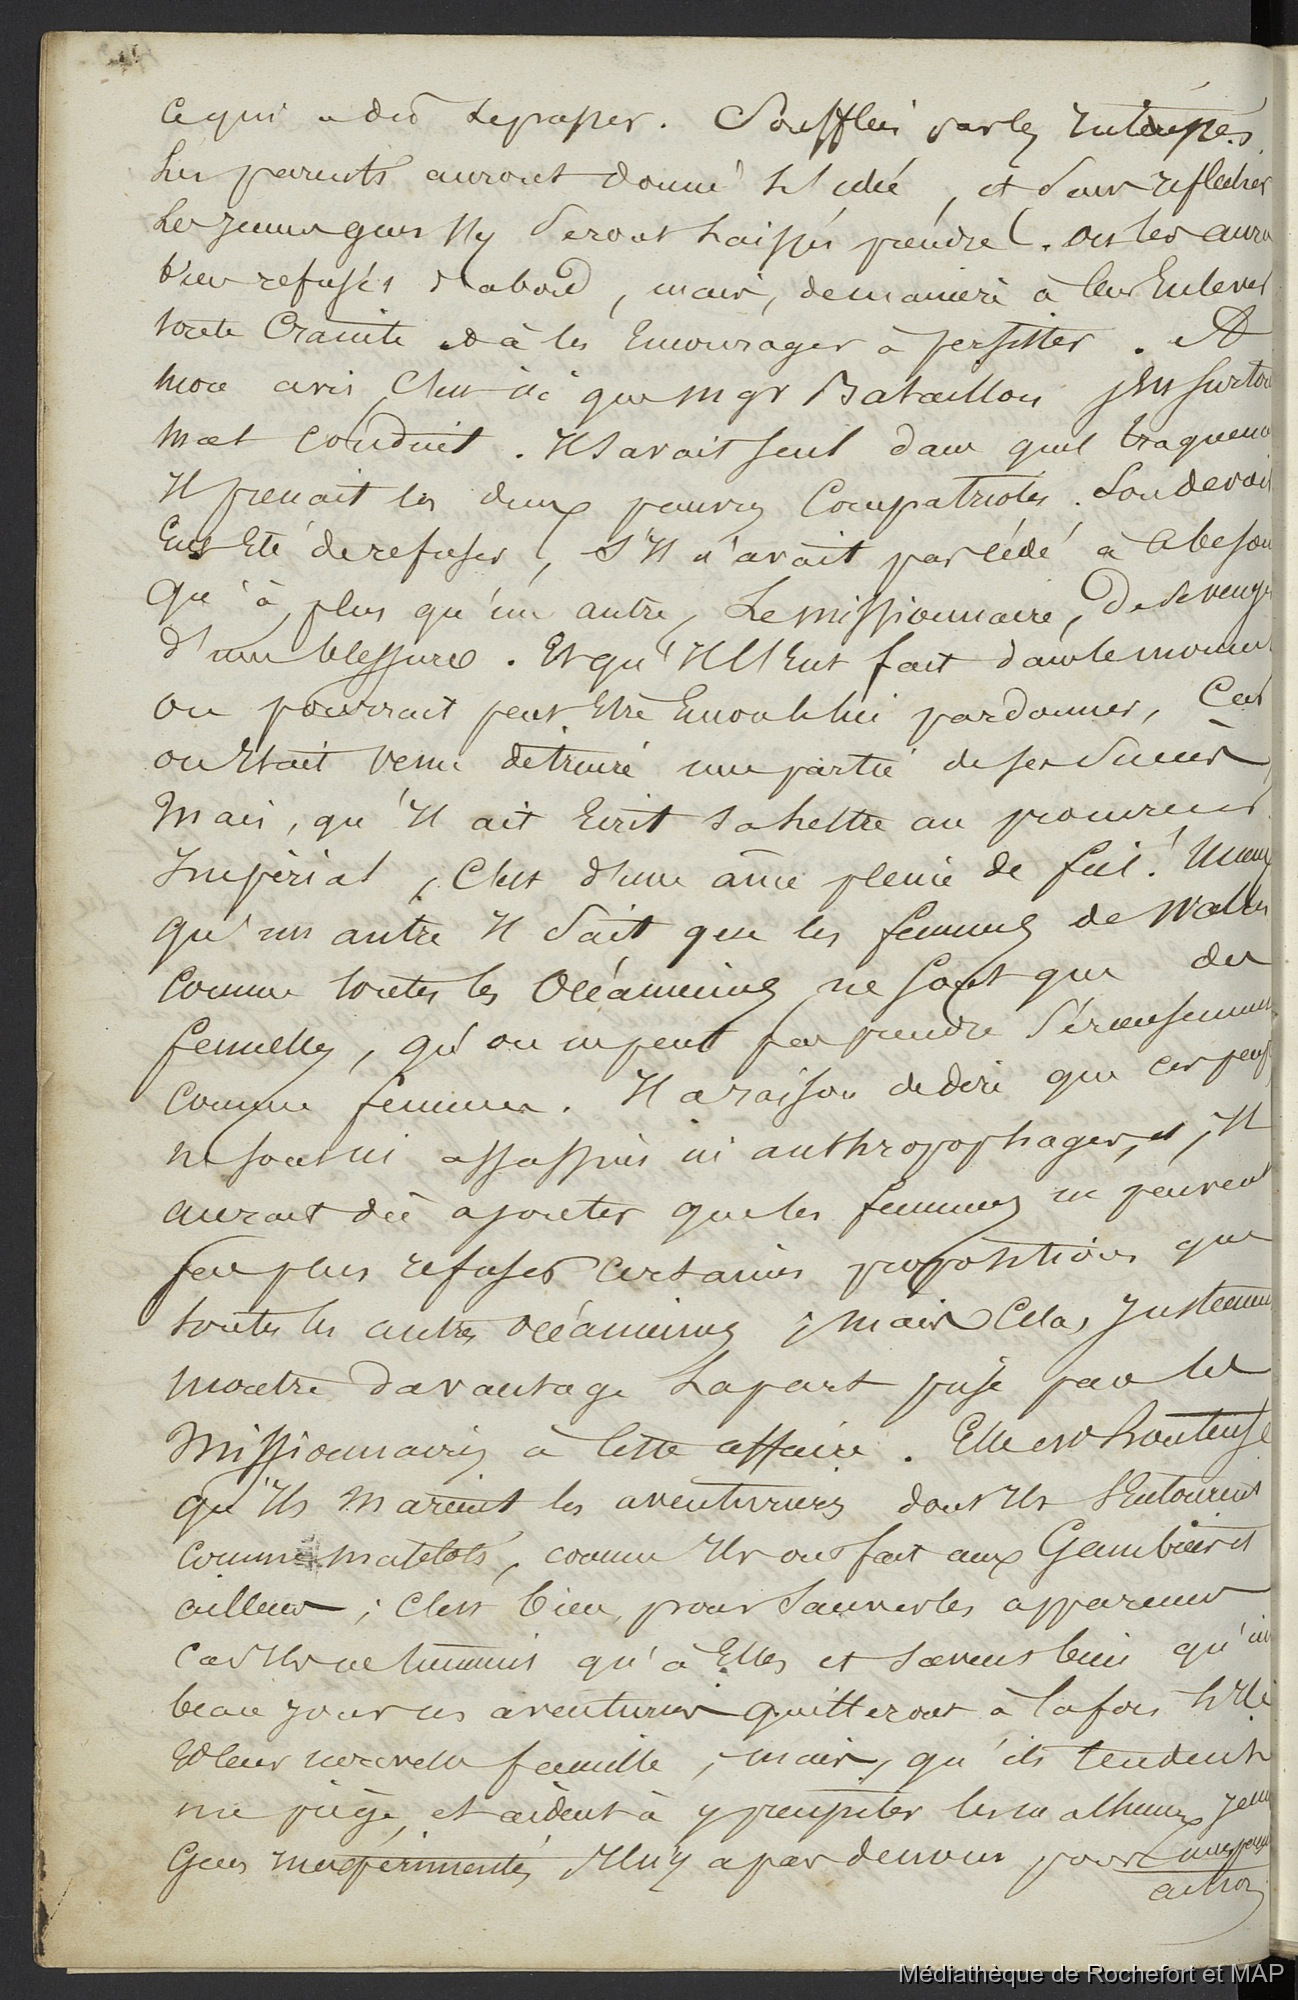 ce qui a dû se passer. Soufflés par les
Les parents auront donné l'idée, et sans reflechir
Les jeunes gens s'y seront laissés prendre. On les aura
bien refusés d'abord, mais, de maniere à leur Enlever
toute Crainte et à les Encourager à persister. A
mon avis C'est ici que Mgr Bataillon s'est surtout
mal conduit. Il savait seul dans quel traquenard
Il prenait les deux pauvres Compatriotes. Son devoir
Eut Eté de refuser, S'Il n'avait pas cédé à
qu'à plus qu'un autre, Le missionnaire, De se venger
d'une blessure. Et qu'Il l'Eut fait dans le moment
on pourrait peut Etre Encore lui pardonner, Car
on Etait venu detruire une partie de ses
Mais, qu'Il ait Ecrit sa Lettre au procureur
Impérial, C'est d'une âme pleine de fiel! Mieux
qu'un autre Il Sait que les femmes de Wallis
Comme toutes les Océaniennes ne sont que des
femelles, qu'on ne peut pas prendre Sérieusement
Comme femmes. Il a raison de dire que ces gens
ne sont ni assassins ni anthropophages, et, Il
aurait dû ajouter que les femmes ne peuvent
pas plus refuser certaines propositions que
toutes les autres océaniennes; Mais Cela, Justement
montre davantage La part prise par les
Missionnaires à Cette affaire. Elle est honteuse
qu'Ils Marient les aventuriers dont Ils s'Entourent
comme matelots, comme Ils ont fait aux Gambier et
ailleurs; C'est bien, pour Sauver les apparences
Car Ils ne tiennent qu'à Elles et savent bien qu'un
beau jour ces aventuriers quitteront à la fois L'Ile
Et leur nouvelle famille; mais, qu'ils tendent
un piège, et aident à y precipiter les malheureux jeunes
Gens inexpérimentés, Il n'y a pas de nom pour une pareille
action
Médiathèque de Rochefort et MAP